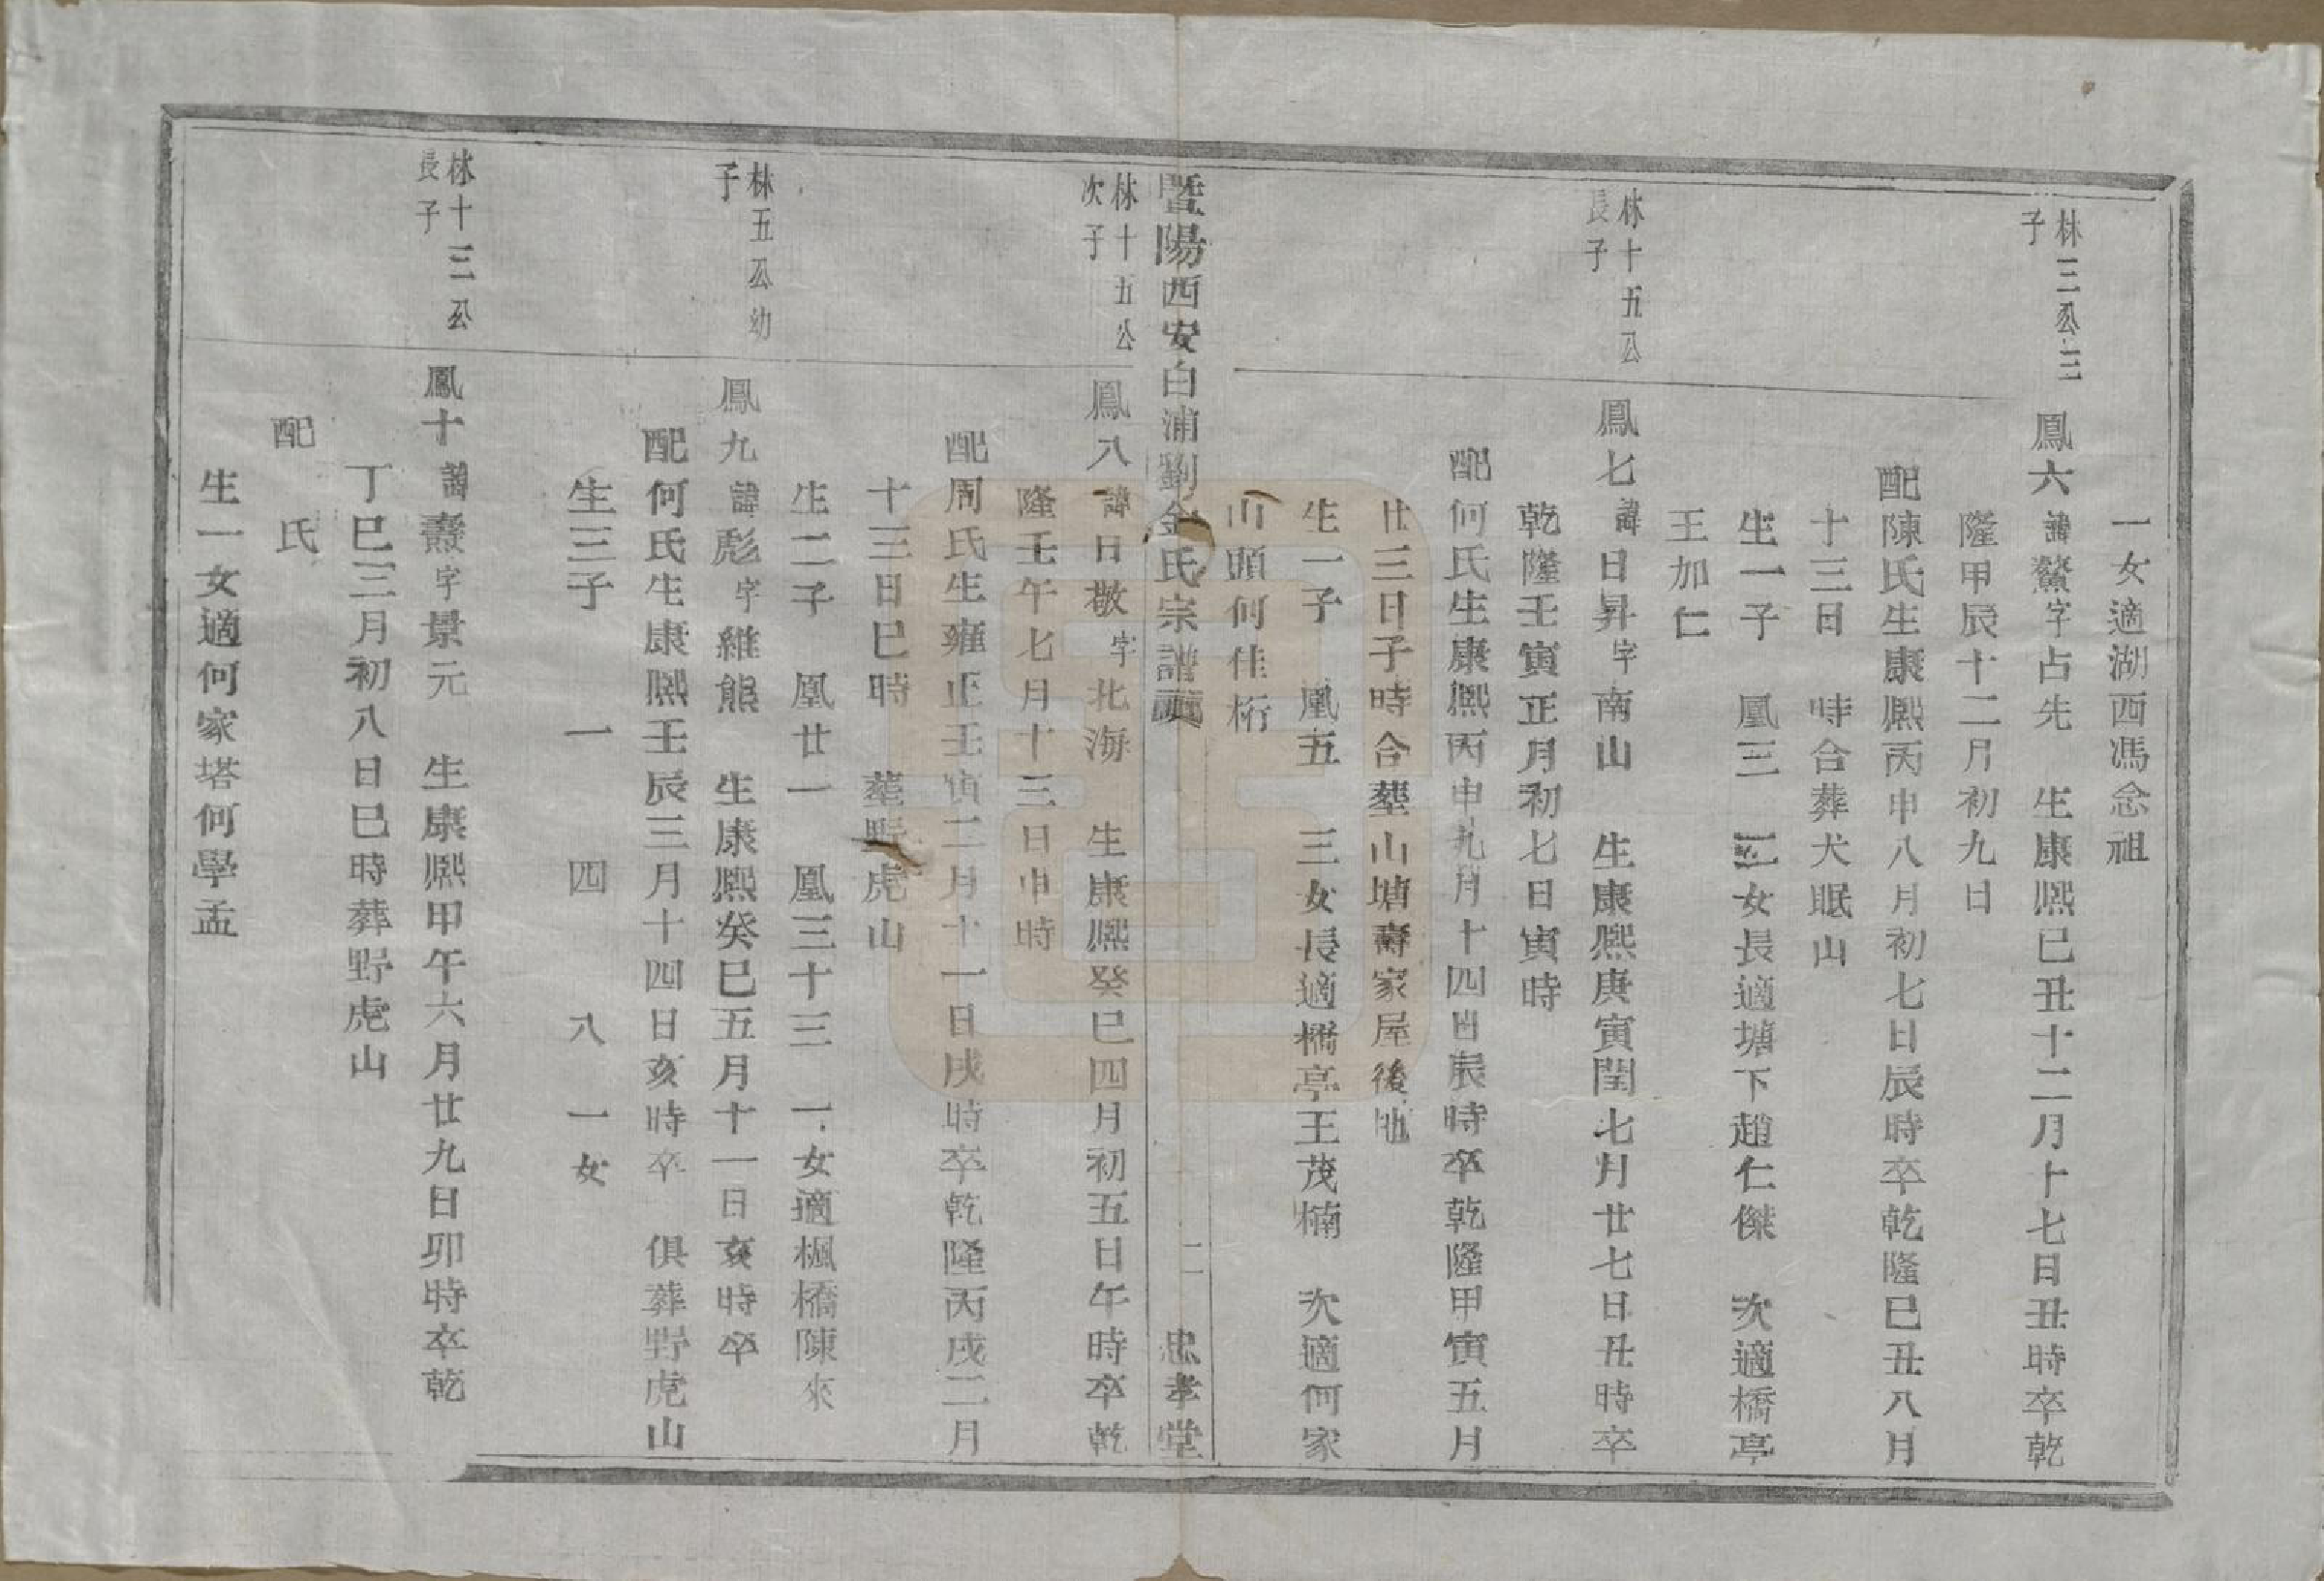 一女適湖西馮念祖
林三公三子
鳳六諱鰲字占先　生康熙己丑十二月十七日丑時卒乾
隆甲辰十二月初九日
配陳氏生康熙丙申八月初七日辰時卒乾隆己丑八月
十三日　時合葬犬眠山
生一子　鳳三　三女長適塘下趙仁傑　次適橋亭
王加仁
林十五公長子
鳳七諱日昇字南山　生康熙庚寅閏七月廿七日丑時卒
乾隆壬寅正月初七日寅時
配何氏生康熙丙申九月十四日辰時卒乾隆甲寅五月
廿三日子時合葬山塘壽家屋後地
生一子　凰五　三女長適橋亭王茂楠　次適何家
山頭何佳桁
暨陽西安白浦劉金氏宗譜　二　忠孝堂
林十五公次子
鳳八諱日敬字北海　生康熙癸巳四月初五日午時卒乾
隆壬午七月十三日申時
配周氏生雍正壬寅二月十一日戌時卒乾隆丙戌二月
十三日巳時　葬野虎山
生二子　凰廿一　凰三十三　一女適楓橋陳來
林五公幼子
鳳九諱彪字維熊　生康熙癸巳五月十一日亥時卒
配何氏生康熙壬辰三月十四日亥時卒　俱葬野虎山
生三子　一　四　八　一女
林十三公長子
鳳十諱燾字景元　生康熙甲午六月廿九日卯時卒乾
丁巳三月初八日巳時葬野虎山
配　氏
生一女適何家塔何學孟